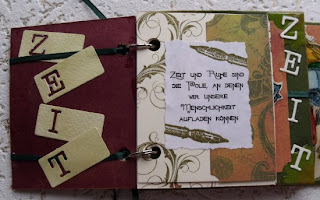 Z
E
I
T
Zeit und Ruhe sind
die Pole, an denen
wir unsere
Menschlichkeit
aufladen können
Z
E
I
T